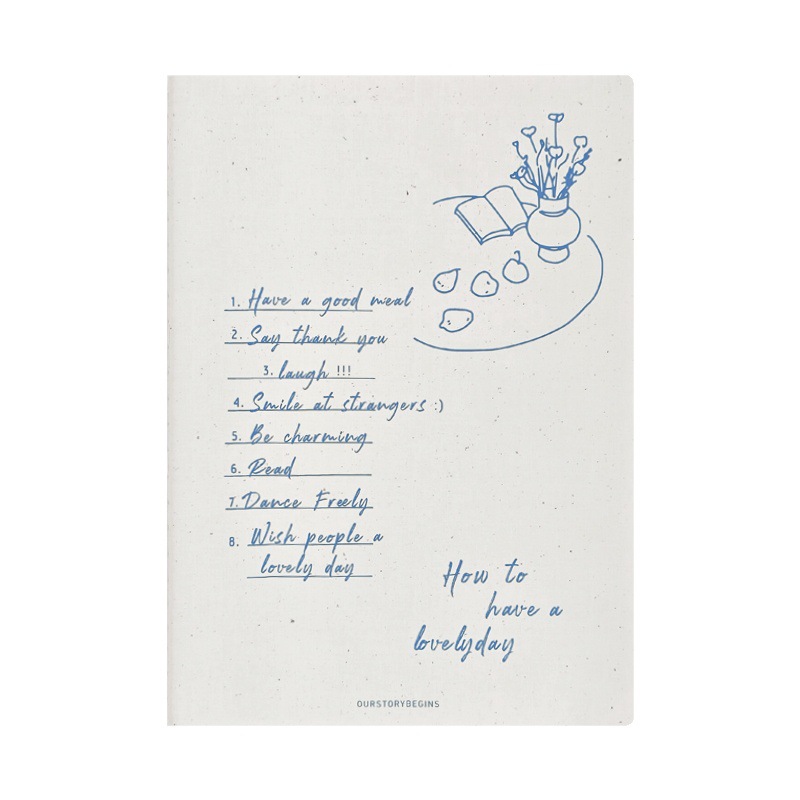 1. Have a good meal
2. Say thank you
3. laugh !!!
4. Smile at strangers :)
5. Be charming
6. Read
7. Dance Freely
8. Wish people a
lovely day
How to
have a
lovelyday
OURSTORYBEGINS